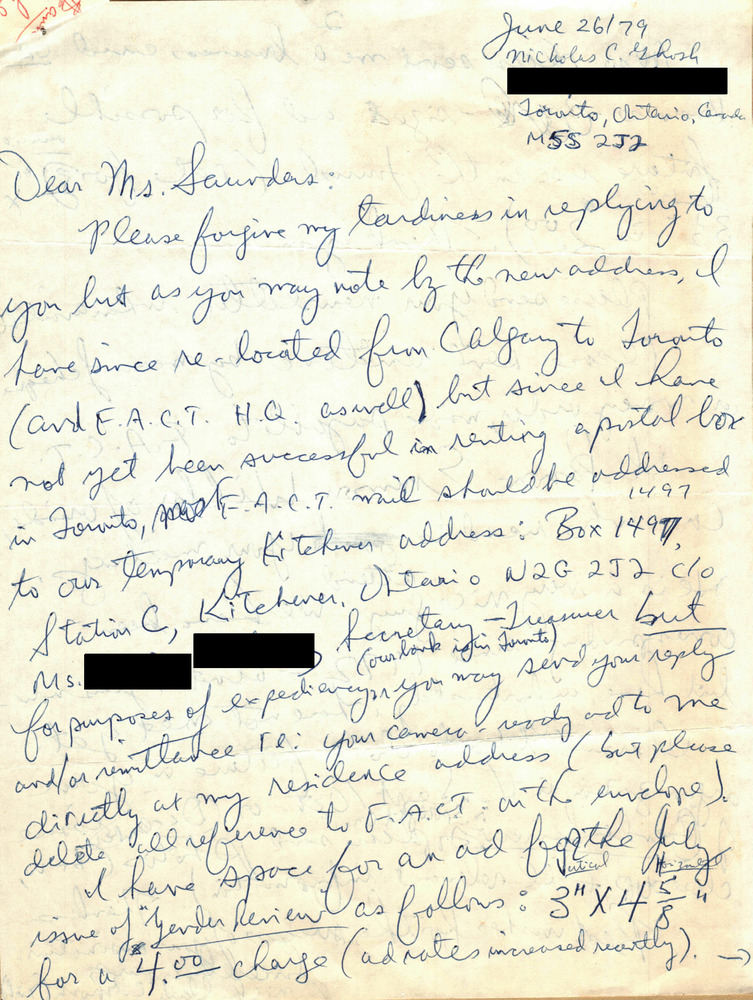 June 26/79
Nicholas C. Ghosh
Toronto, Ontario, Canada
M5S 2J2
Dear Ms. Saunders:
Please forgive my tardiness in replying to
you but as you may note by the new address, I
have since re-located from Calgary to Toronto
(and F.A.C.T. H.Q. as well) but since I have
not yet been successful in renting a postal box
in Toronto, F.A.C.T. mail should be addressed
1497
to our temporary Kitchener address: Box 1497,
Station C, Kitchener, Ontario N2G 2J2 c/o
Ms. Secretary-Treasurer but
(our bank is in Toronto)
for purposes of expediency you may send your reply
and/or remittance re: your camera-ready ad to me
directly at my residence address (but please
delete all reference to F.A.C.T. on the envelope).
I have space for an ad for the July
Vertical Horizontal
issue of "Gender Review" as follows: 3" X 4 5/8"
for a $4.00 charge (ad rates increased recently). →